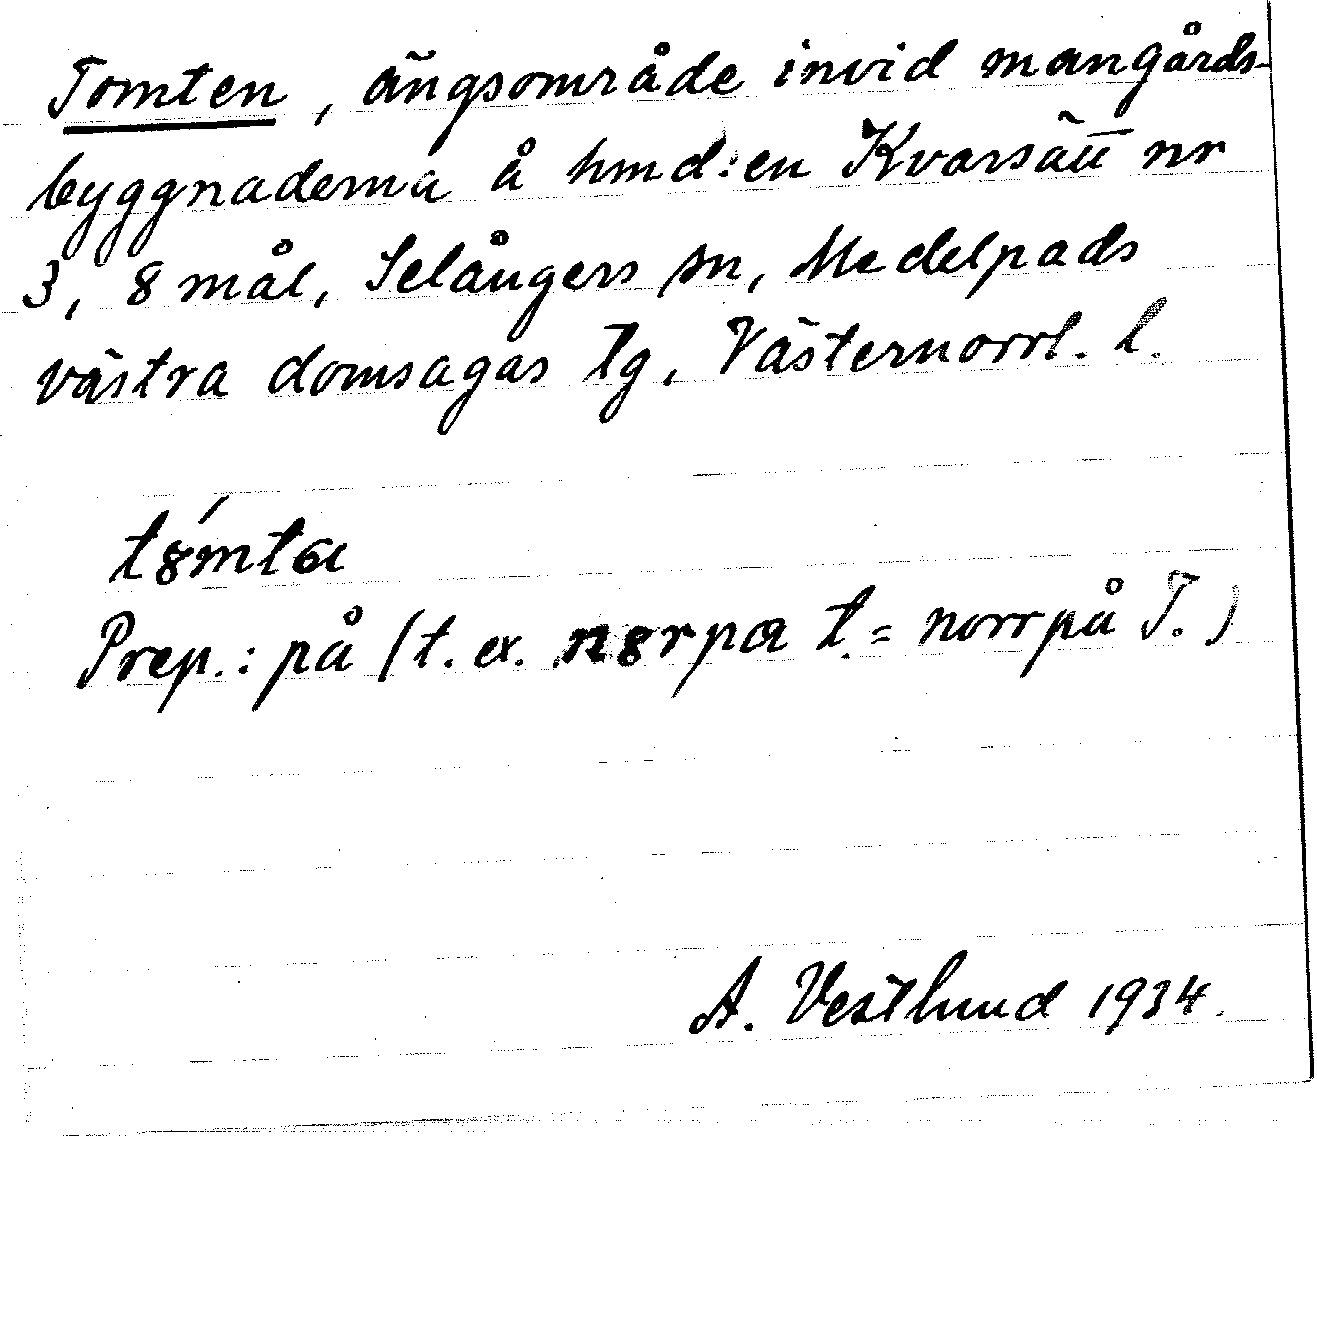 Tomten, ängsområde invid mangårds-
byggnaderna å hmd:en Kvarsätt nr
3, 8 mål, Selångers sn, Medelpads
västra domsagas tg, Västernorrl. l.
t8́mta
Prep.: på (t. ex. n8rpa t. = norr på T.)
A. Vestlund 1934.